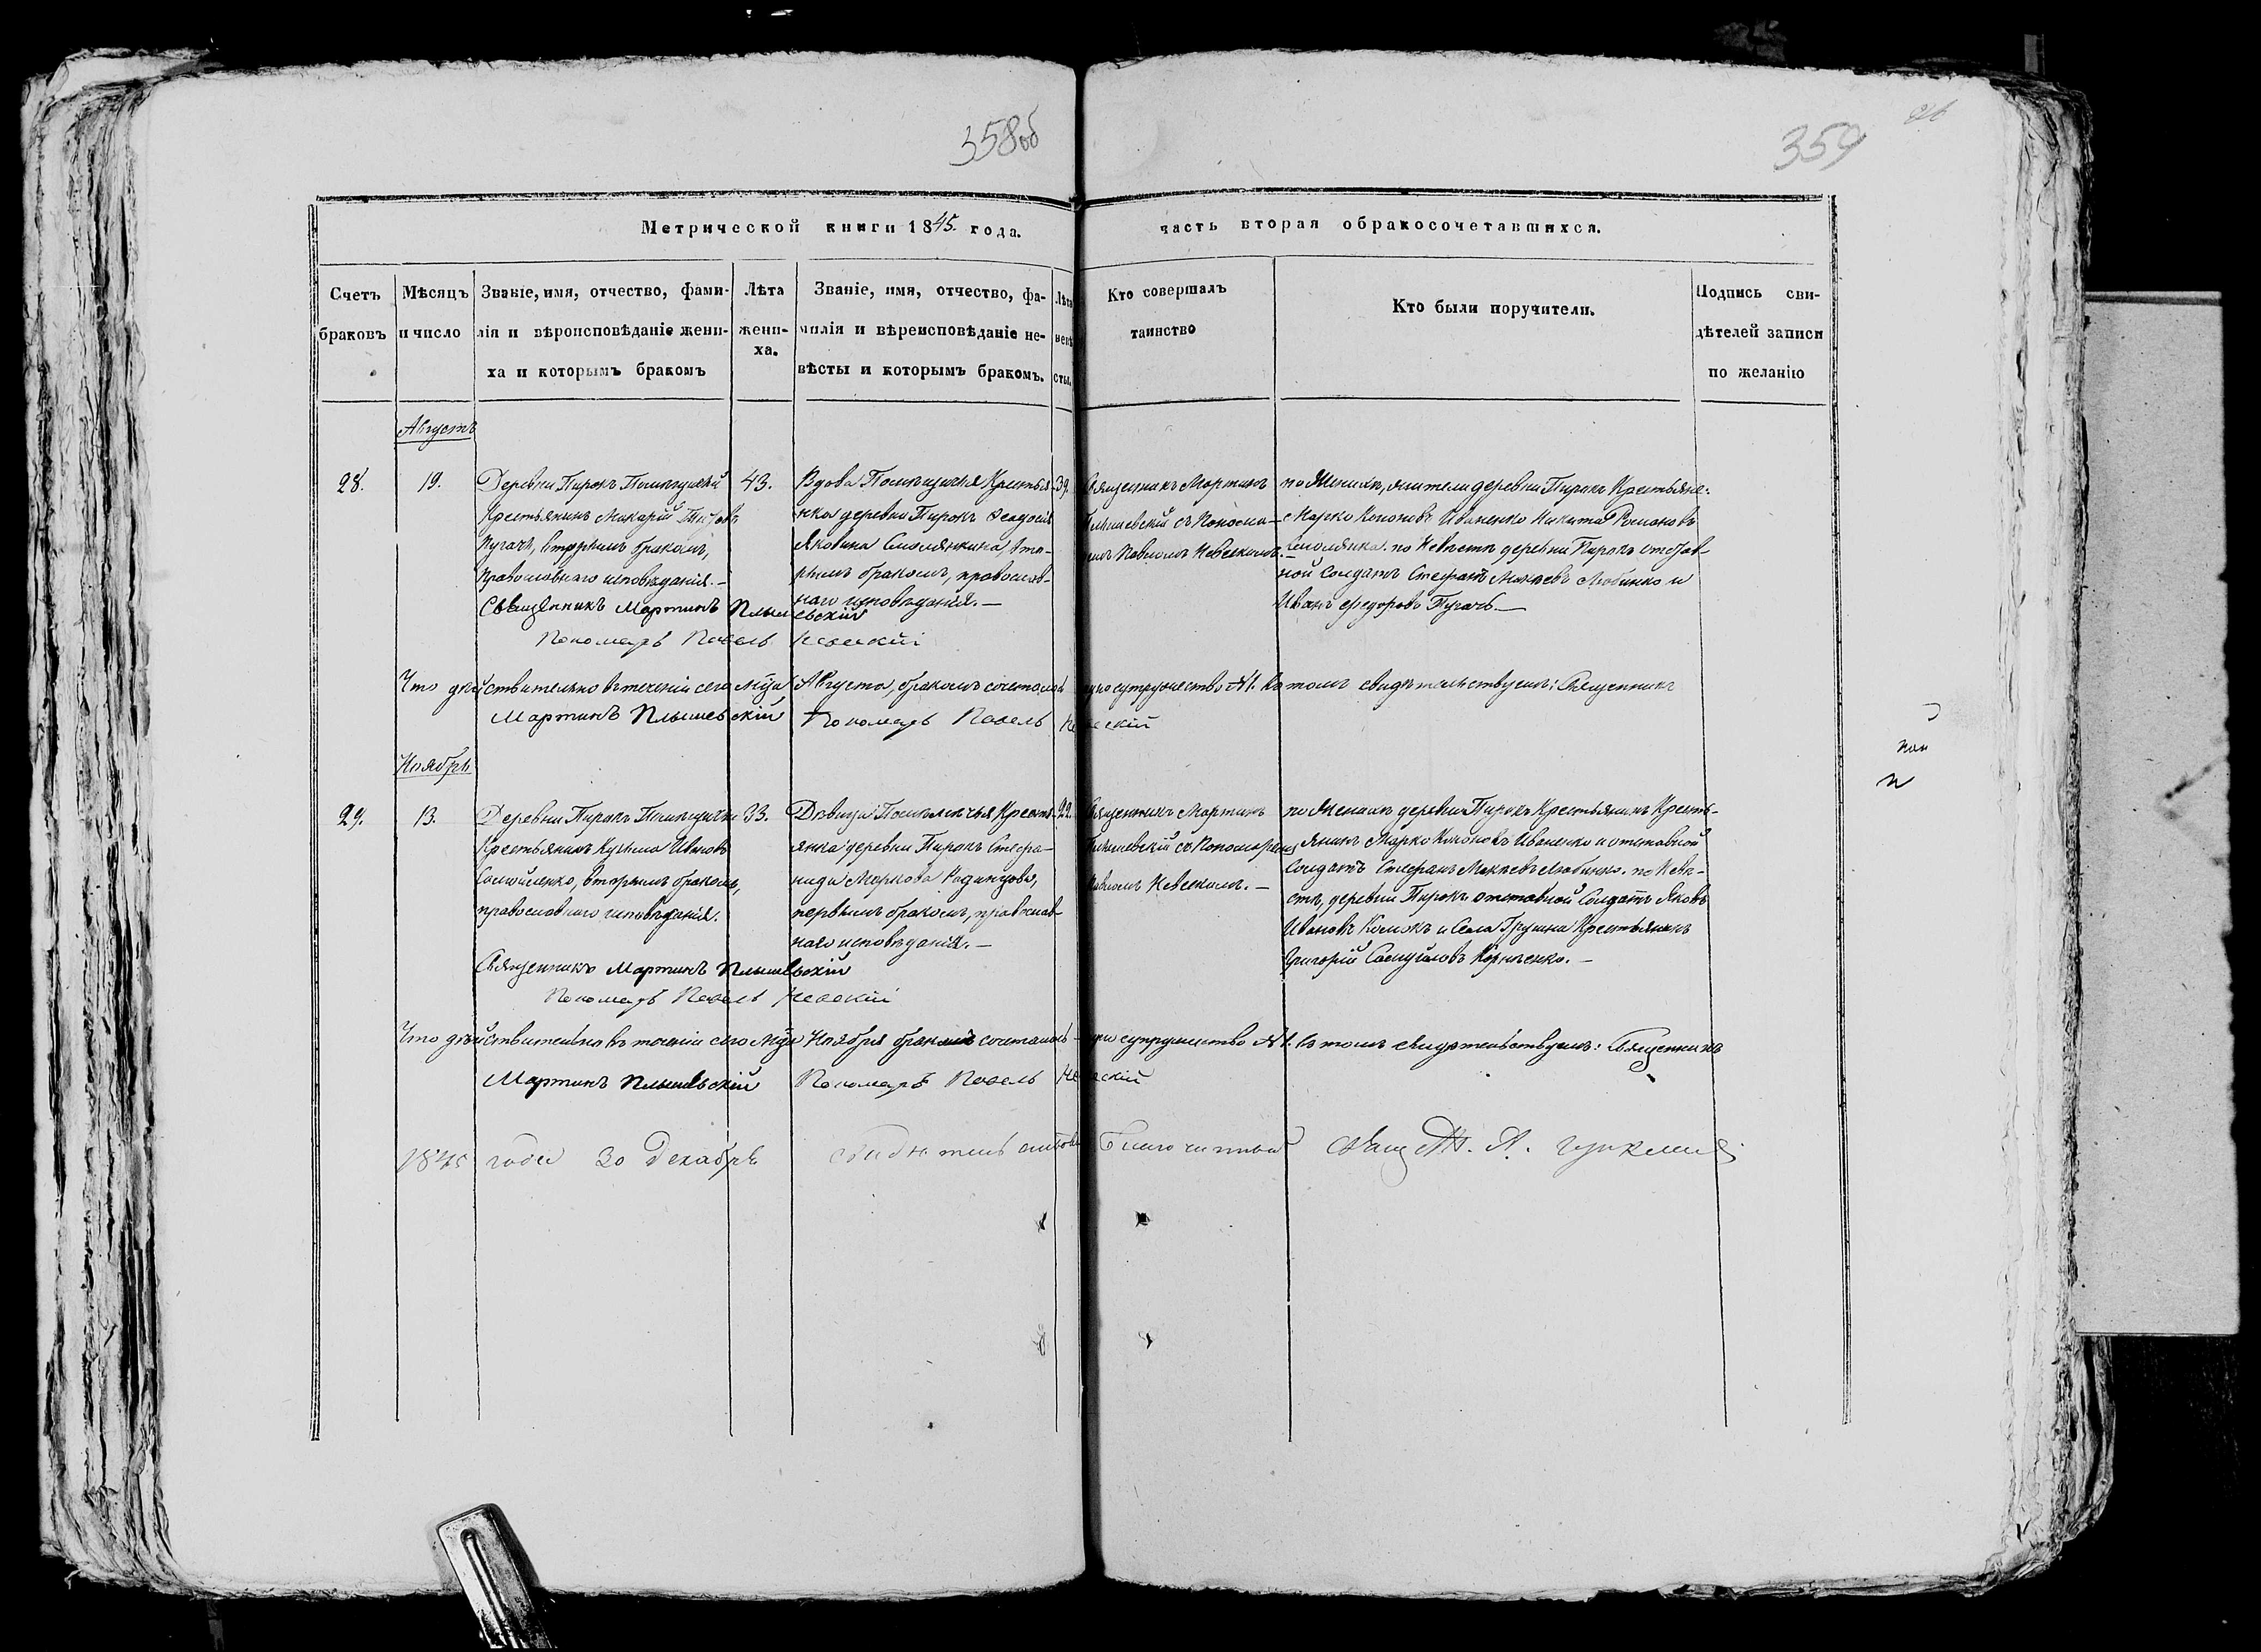 358об
359
Метрической книги 1845. года.
часть вторая о бракосочетавшихся.
Счетъ браковъ
Мѣсяцъ и число
Званіе, имя, отчество, фами-
лія и вѣроисповѣданіе жени-
ха и которымъ бракомъ
Лѣта
жени-
ха.
Званіе, имя, отчество, фа-
милія и вѣреисповѣданіе не-
вѣсты и которымъ бракомъ.
Лѣта
невѣ
сты.
Кто совершалъ
таинство
Кто были поручители.
Подпись сви-
дѣтелей записи
по желанію
Августъ
28.
19.
Деревни Пирокъ Помѣщичій
Крестьянинъ Макарій Титовъ
Пугачъ, вторымъ бракомъ,
православнаго исповѣданія.-
43.
Вдова Помѣщичья Крестья-
нка деревни Пирокъ Ѳеодосія
Яковина Смолянкина, вто-
рымъ бракомъ, православ-
наго исповѣданія.—
39.
Священникъ Мартинъ
съ Понома-
Павломъ Невскимъ.
по Женихѣ, жители деревни Пирокъ Крестьяне:
Марко Кононовъ Иваненко Никита Романовъ
Смолянка. по Невѣстѣ деревни Пирокъ отстав-
ной Солдатъ Стефанъ Мокѣевъ Любинко и
Иванъ Федоровъ Пугачь.—
Священникъ Мартинъ Плышевскій
Пономарь Павелъ Невскій
Что дѣйствительно въ теченіи сего Мѣца Августа, бракомъ сочеталось одно супружество №1. въ томъ свидѣтельствуемъ: Священникъ
Мартинъ Плышевскій Пономарь Павелъ Невскій
Ноябрь
29.
13.
Деревни Пирокъ Помѣщичій
Крестьянинъ Кузьма Ивановъ
Самойленко, вторымъ бракомъ,
православнаго исповѣданія.
33.
Дѣвица Помѣщичья Кресть-
янка деревни Пирокъ Стефа-
нида Маркова Радинцова,
первымъ бракомъ, православ-
наго исповѣданія.—
22.
Священникъ Мартинъ
съ Пономаремъ
Павломъ Невскимъ.—
по Женихѣ деревни Пирокъ Крестьянинъ Кресть-
янинъ Марко Кононовъ Иваненко и отставной
Солдатъ Стефанъ Мокѣевъ Любинко. по Невѣ-
стѣ, деревни Пирокъ отставной Солдатъ Яковъ
Ивановъ Комокъ и Села Грушна Крестьянинъ
Григорій Самуиловъ Корнѣенко.—
Священникъ Мартинъ Плышевскій
Пономарь Павелъ Невскій
Что дѣйствительно въ теченіи сего Мѣца Ноября бракомъ сочеталось одно супружество №1. въ томъ свидѣтельствуемъ: Священникъ
Мартинъ Плышевскій Пономарь Павелъ Невскій
1845 года 30 Декабрь